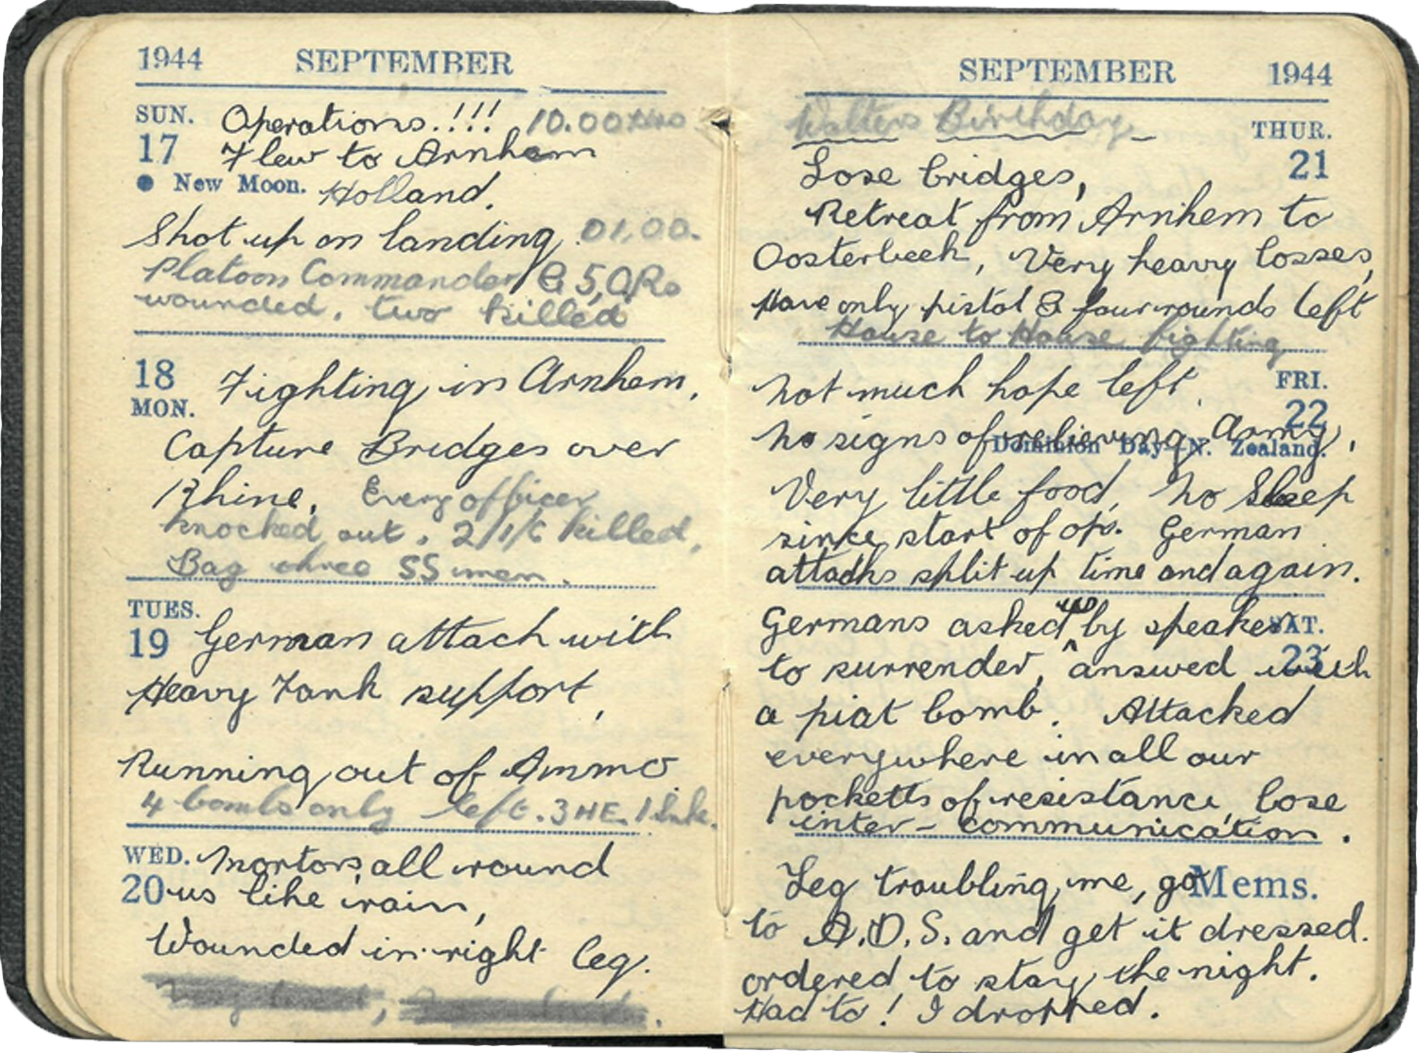 1944 SEPTEMBER
SUN. Operations.!!! 10.00 Hrs
17 Flew to Arnhem
● New Moon. Holland.
Shot up on landing. 01.00.
Platoon Commander &
wounded. two killed
18 Fighting in Arnhem.
MON.
Capture Bridges over
Rhine. Every officer
knocked out. 2 I/C killed.
Bag three SS men.
TUES.
19 German attack with
Heavy Tank support,
Running out of Ammo
4 bombs only left. 3 HE. 1
WED. Mortors all round
20 us like rain,
Wounded in right leg.
SEPTEMBER 1944
Walters Birthday
THUR.
Lose bridges, 21
Retreat from Arnhem to
Oosterbeek, Very heavy losses,
Have only pistol & four rounds left
House to House fighting
Not much hope left. FRI.
22
No signs of relieving Army.
Dominion Day—N. Zealand.
Very little food, No Sleep
since start of ops. German
attacks split up time and again.
Germans asked us by speaker SAT.
to surrender, answed with 23
a piat bomb. Attacked
everywhere in all our
pocketts of resistance, lose
inter-communication.
Leg troubling me, go Mems.
to A.D.S. and get it dressed.
ordered to stay the night.
Had to! I dropped.